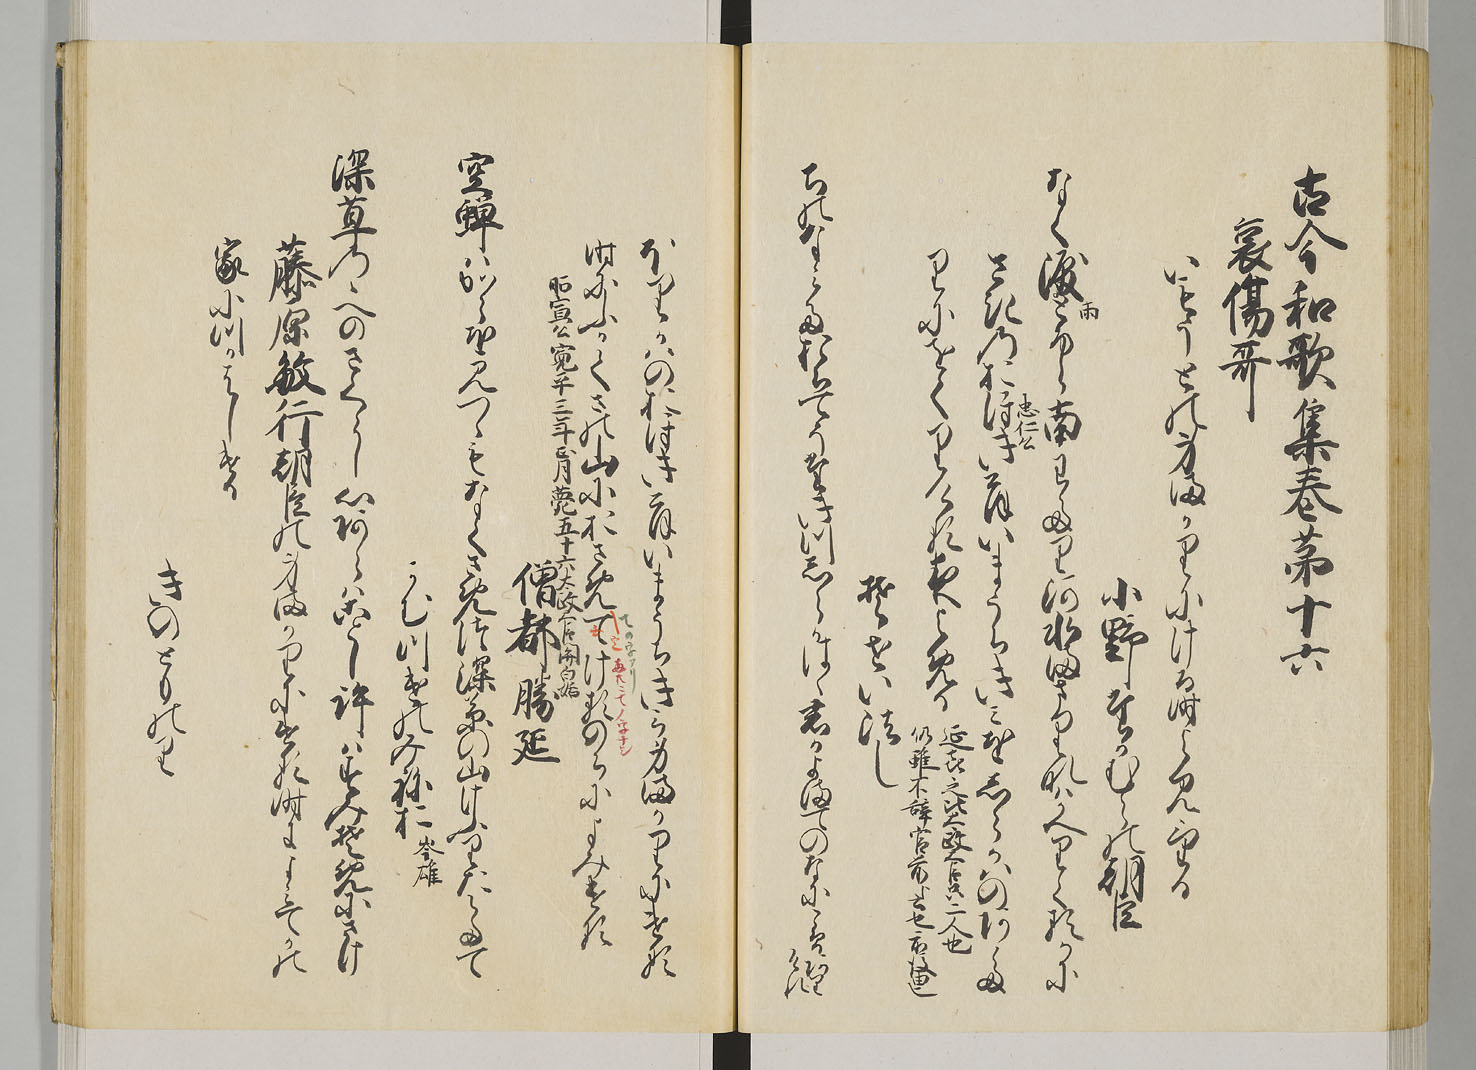 古今和歌集巻第十六
哀傷哥
いもうとの身まかりにける時よみける
小野たかむらの朝臣
なく涙雨とふら南わたり河水まさりなはかへりくるかに
雨
さきのおほきおほいまうちきみをしらかはのあたり
忠仁公
にをくりける夜よめる
そせい法し
ちのなみたおちてそたきつしら河は君かよまてのなにこそ有けれ
ほりかはのおほきおほいまうちきみ身まかりにける
時にふかくさの山におさめてけるのちによみける
昭宣公寛平三年正月薨五十六太政大臣関白始
僧都勝延
空蝉はからをみつゝもなくさめつ深草の山けふりたにたて
かむつけのみねお
岑雄
深草のゝへのさくらし心あらはことし許はすみそめにさけ
藤原敏行朝臣の身まかりにける時によみてかの
家につかはしける
きのとものり